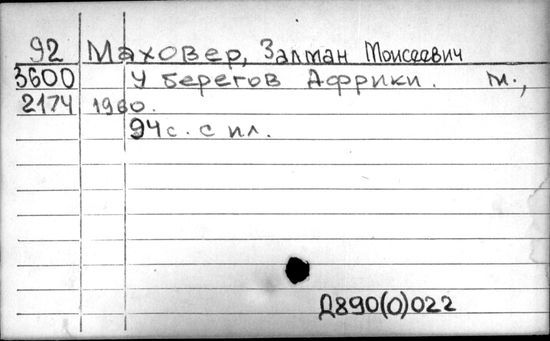 92 Маховер, Залман Моисеевич
3600 У берегов Африки. М.,
2174 1960.
94 с. с ил.
Д890(0)022